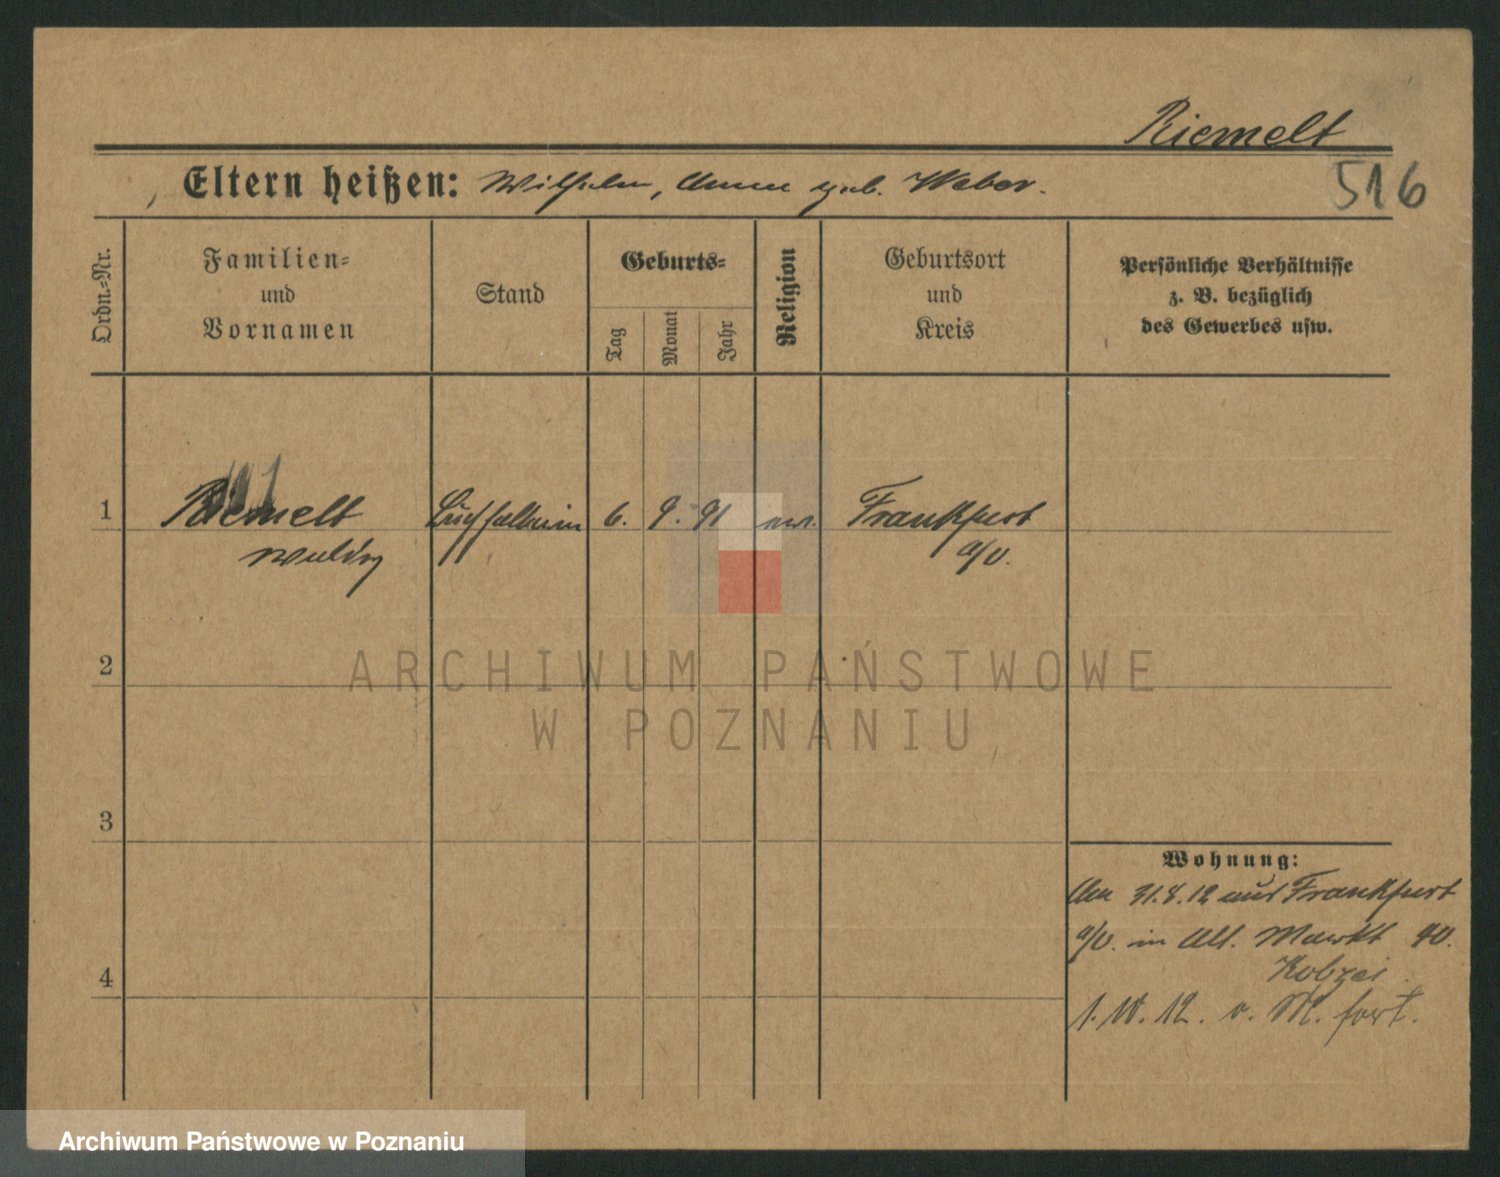 Riemelt
516
Eltern heißen: Wilhelm, Anna geb. Weber.
Ordn.-Nr.
Familien-
und
Vornamen
Stand
Geburts-
Tag
Monat
Jahr
Religion
Geburtsort
und
Kreis
Persönliche Verhältnisse
z. B. bezüglich
des Gewerbes usw.
1
Riemelt
6. 9. 91
Frankfurt
a/O.
2
3
4
Wohnung:
Am 31.8.12 aus Frankfurt
a/O. in Alt. Markt 90.
1. 10. 12. v. M. fort.
ARCHIWUM PAŃSTWOWE
W POZNANIU
Archiwum Państwowe w Poznaniu